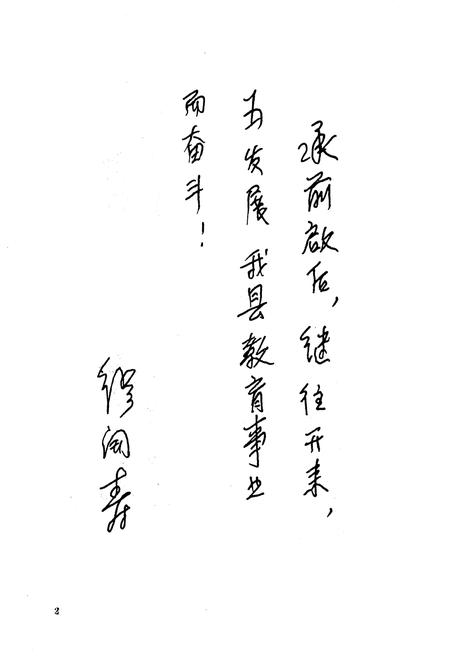 承前啟后，继往开来，
为发展我县教育事业
而奋斗！
2